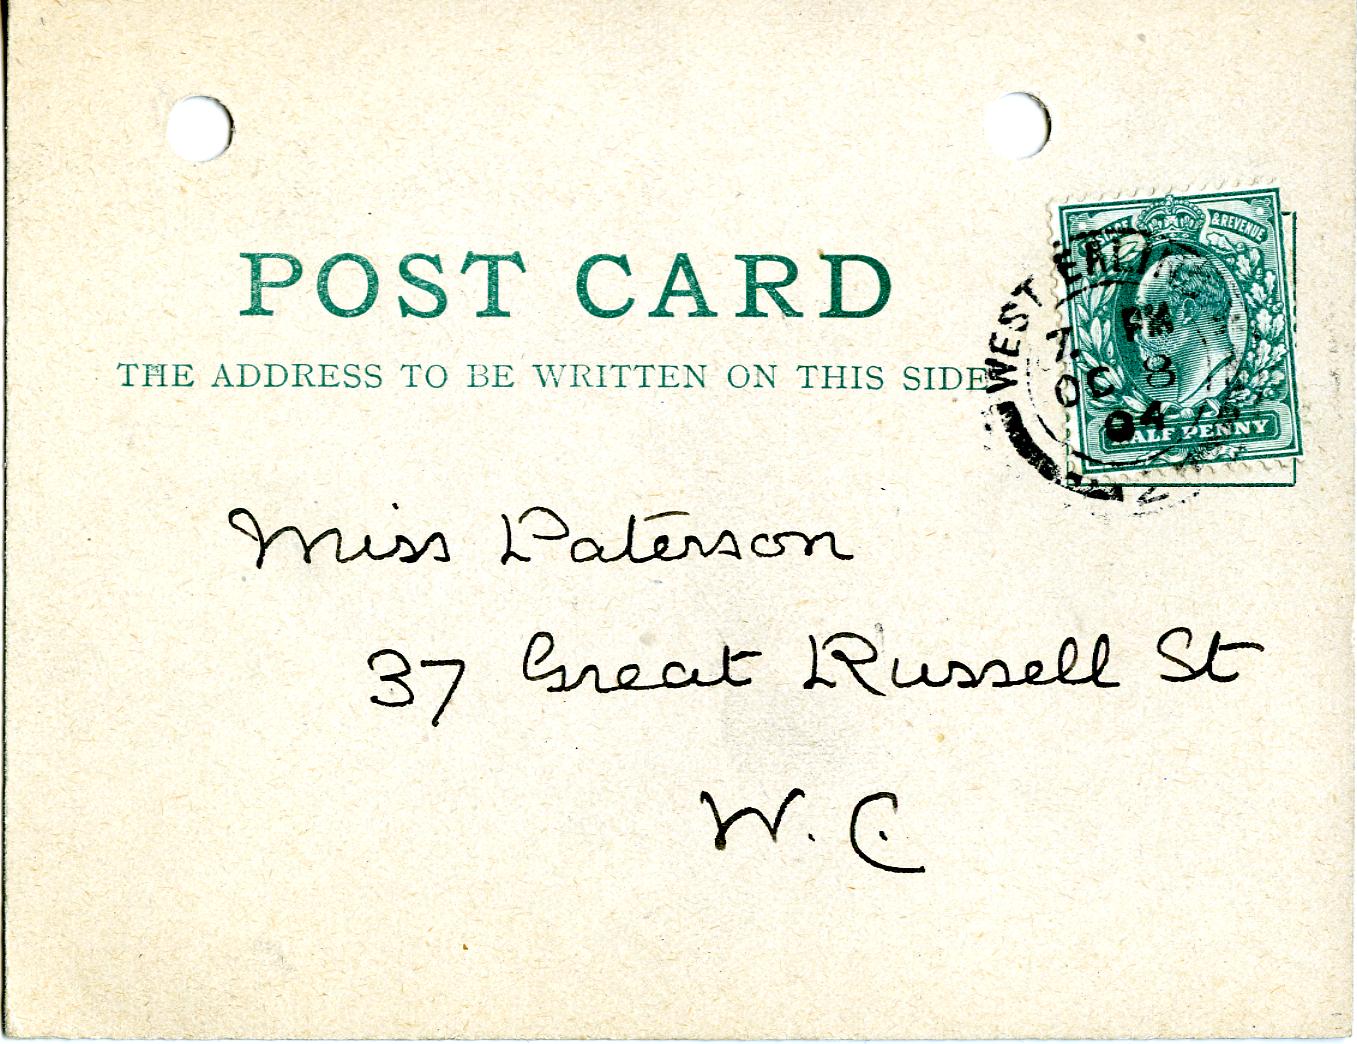 POST CARD
THE ADDRESS TO BE WRITTEN ON THIS SIDE
& REVENUE
HALF PENNY
WEST EALING
PM
OC 8
04
Miss Paterson
37 Great Russell St
W. C.